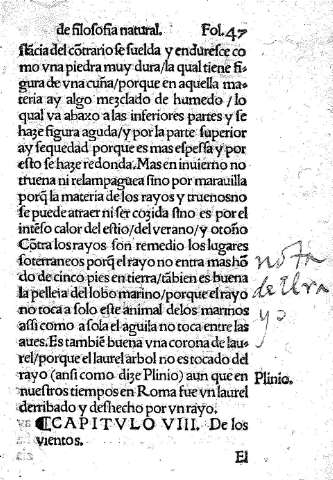 de filosofia natural. Fol. 47
stãcia del cõtrario se suelda y enduresce co
mo vna piedra muy dura/la qual tiene fi-
gura de vna cuña/porque en aquella ma-
teria ay algo mezclado de humedo / lo
qual va abaxo a las inferiores partes y se
haze figura aguda/y por la parte superior
ay sequedad porque es mas espessa y por
esto se haze redonda. Mas en inuierno no
truena ni relampaguea sino por marauilla
porq̃ la materia de los rayos y truenos no
se puede atraer ni ser cozida sino es por el
intẽso calor del estio/del verano/y otoño
Cõtra los rayos son remedio los lugares
soterraneos porq̃ el rayo no entra mas hõ
do de cinco pies en tierra/tãbien es buena
la pelleia del lobo marino/porque el rayo
no toca a solo este animal de los marinos
assi como a sola el aguila no toca entre las
aues. Es tambiẽ buena vna corona de lau-
rel/porque el laurel arbol no es tocado del
rayo (ansi como dize Plinio) aun que en
nuestros tiempos en Roma fue vn laurel
derribado y deshecho por vn rayo.
CAPITVLO VIII. De los
vientos.
El
nota
del ra
yo
Plinio.